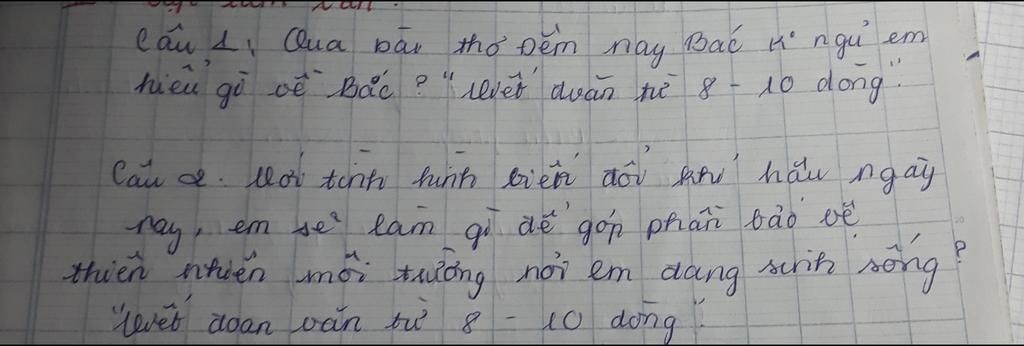 Câu 1, Qua bài thơ Đêm nay Bác k° ngủ em
hiểu gì về Bác? "Viết đoạn từ 8 - 10 dòng".
Câu 2. Với tình hình biến đổi khí hậu ngày
nay, em sẽ làm gì để góp phần bảo vệ
thiên nhiên môi trường nơi em đang sinh sống?
"Viết đoạn văn từ 8 - 10 dòng".